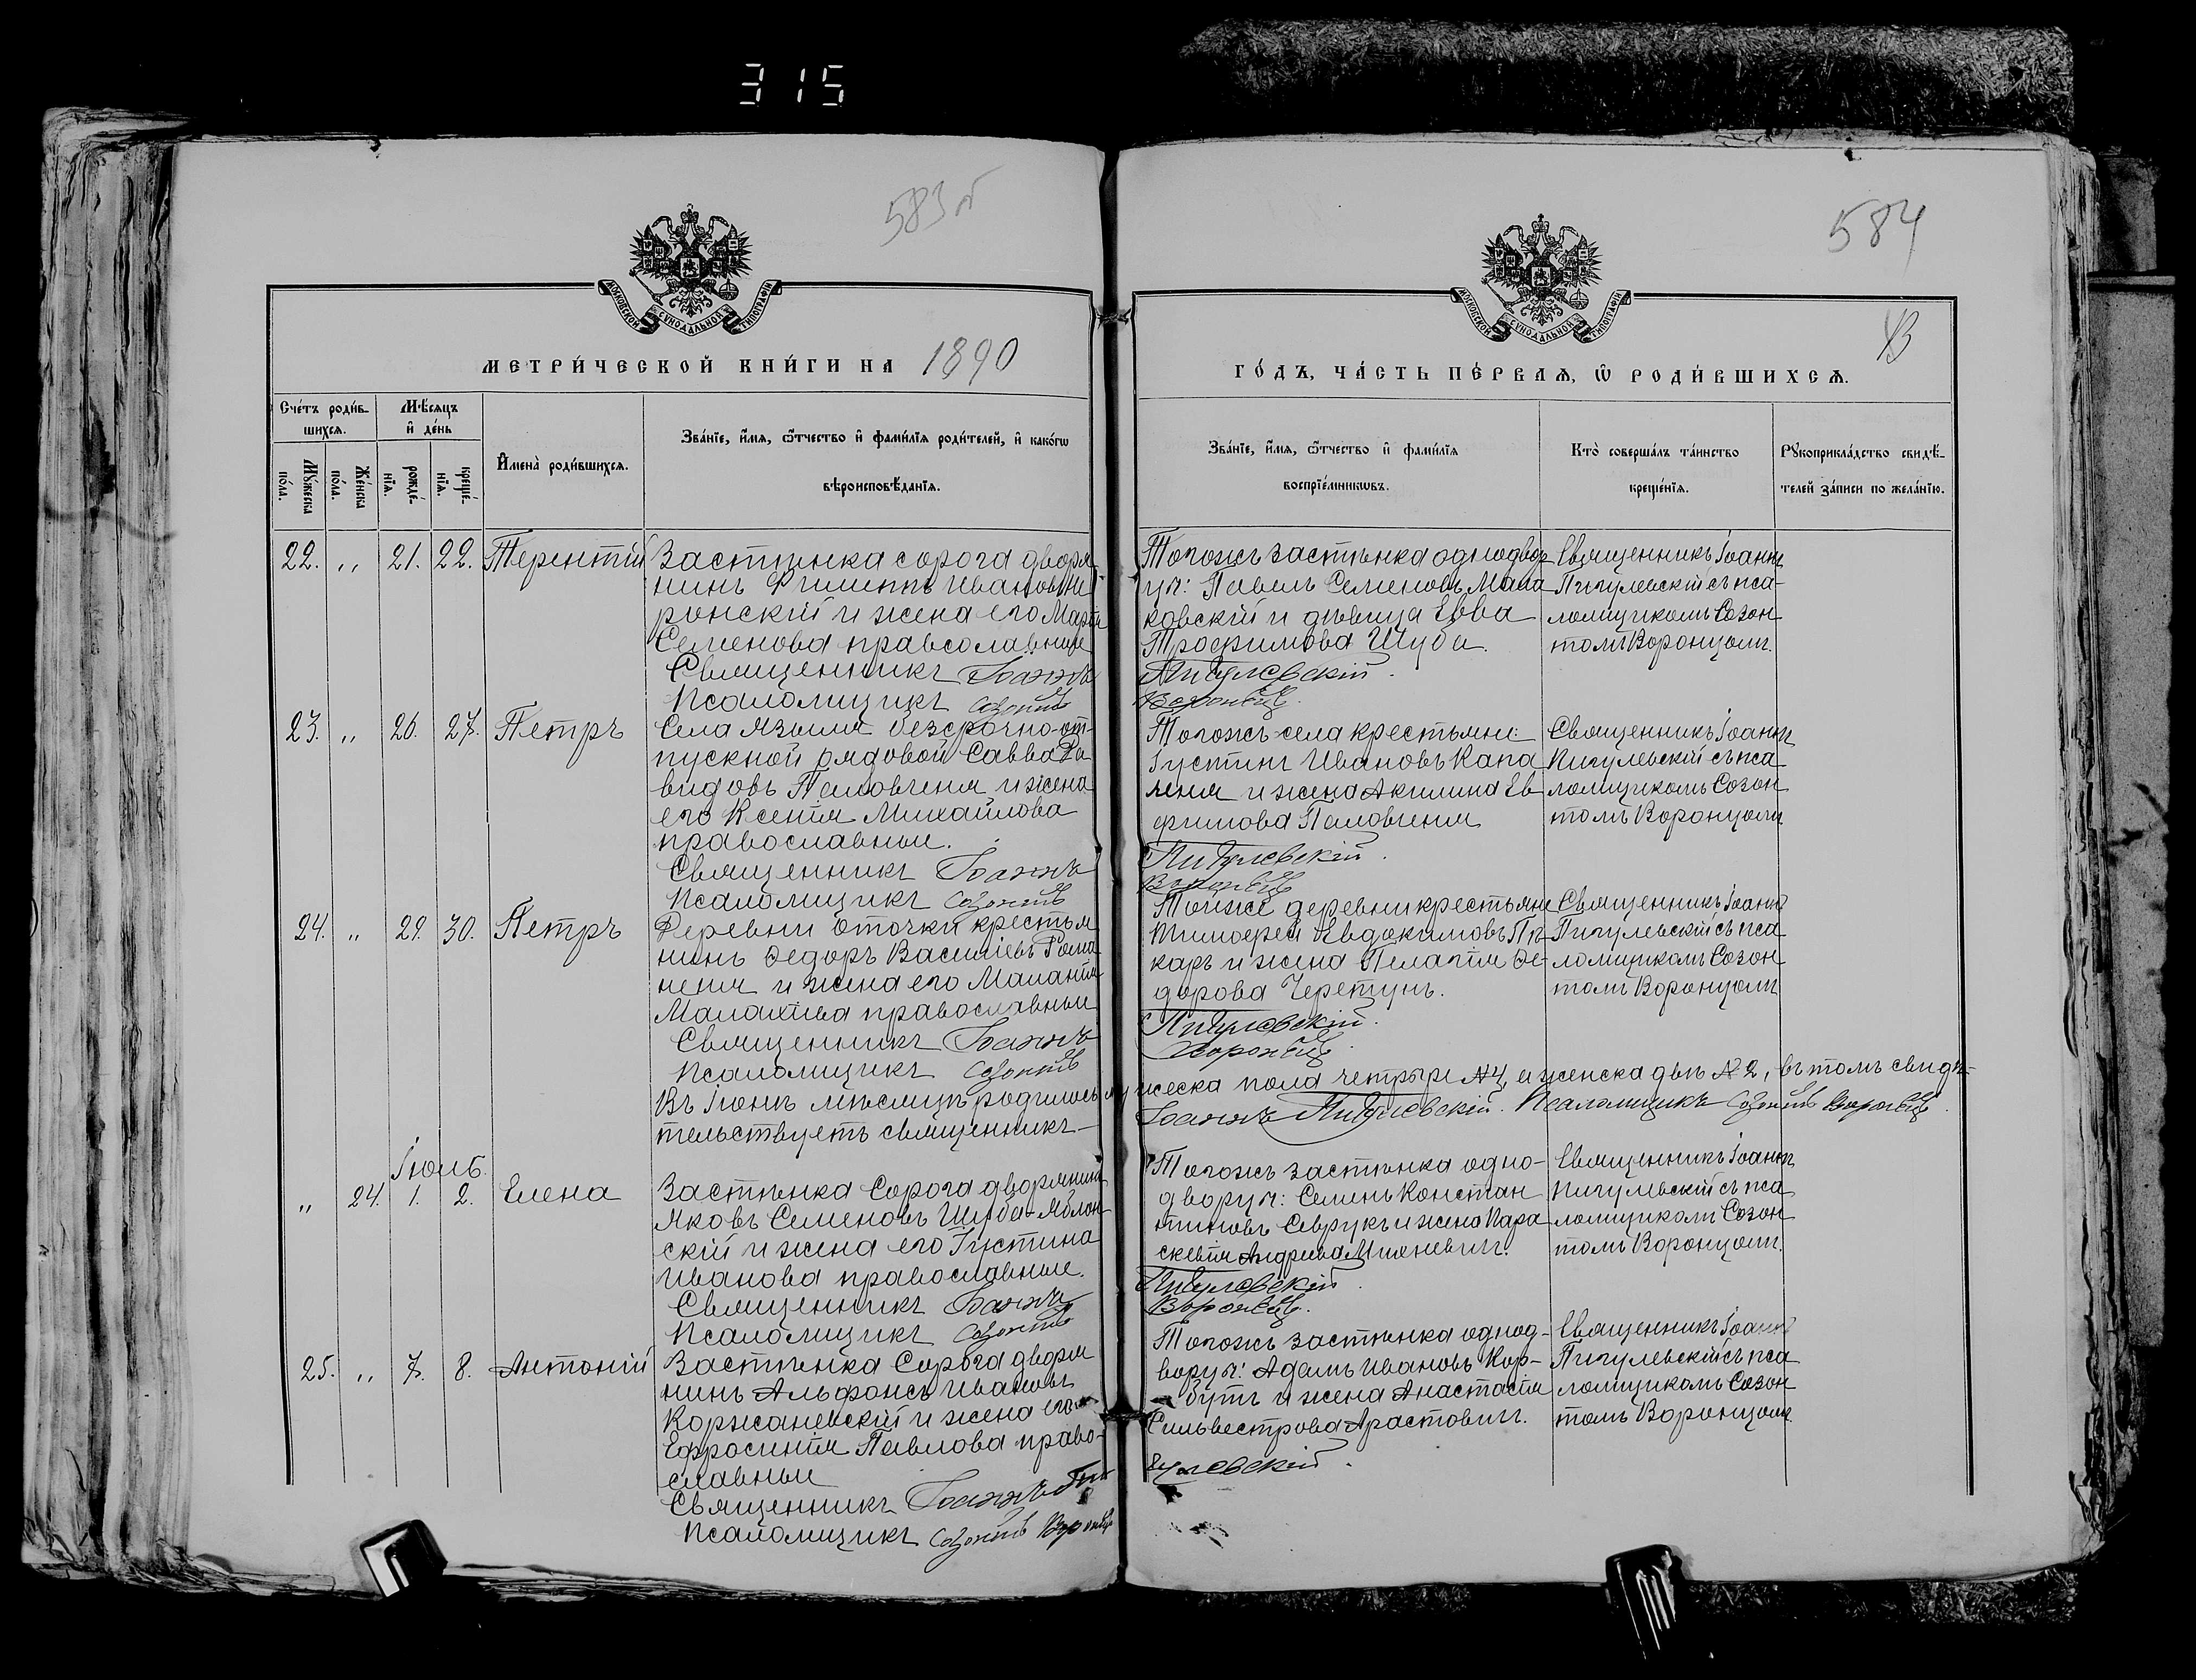 315
583 об
584
МОСКОВСКОЙ СУНОДАЛЬНОЙ ТИПОГРАФІИ
МОСКОВСКОЙ СУНОДАЛЬНОЙ ТИПОГРАФІИ
МЕТРИ́ЧЕСКОЙ КНИ́ГИ НА 1890
ГО́ДЪ, ЧА́СТЬ ПЕ́РВАѦ, Ѡ҆ РОДИ́ВШИХСѦ.
Сче́тъ роди́в-
шихсѧ.
Мѣ́сѧцъ
и҆ де́нь
Мꙋ́жеска по́ла.
Же́нска по́ла.
рожде́-нїѧ.
креще́-нїѧ.
И҆мена̀ роди́вшихсѧ.
Зва́нїе, и҆́мѧ, ѻ҆́тчество и҆ фами́лїѧ роди́телей, и҆ како́гѡ
вѣроисповѣ́данїѧ.
Зва́нїе, и҆́мѧ, ѻ҆́тчество и҆ фами́лїѧ
воспрїе́мникѡвъ.
Кто̀ соверша́лъ та́инство
креще́нїѧ.
Рꙋкоприкла́дство свидѣ́-
телей за́писи по жела́нїю.
22. „ 21. 22. Терентій
Застѣнка Сорога дворя
нинъ Филиппъ Ивановъ
и жена его Марѳа
Семенова православные
Священникъ Іоаннъ
Псаломщикъ Созонтъ
Тогожъ застѣнка однодвор
цы: Павелъ Семеновъ Мала
ковскій и дѣвица Евва
Трофимова Шуба.
Пигулевскій.
Воронецъ.
Священникъ Іоаннъ
Пигулевскій съ пса-
ломщикомъ Созон
томъ Воронцомъ.
23. „ 26. 27. Петръ
Села Языля безсрочно-от-
пускной рядовой Савва Да
видовъ Паловченя и жена
его Ксенія Михайлова
православные.
Священникъ Іоаннъ
Псаломщикъ Созонтъ
Тогожъ села крестьяне:
Іустинъ Ивановъ Капа
ченя и жена Акилина Ев
фимова Паловченя
Пигулевскій.
Воронецъ
Священникъ Іоаннъ
Пигулевскій съ пса
ломщикомъ Созон
томъ Воронцомъ
24. „ 29. 30. Петръ
Деревни Оточки крестья
нинъ Ѳедоръ Василіевъ Рома
неня и жена его Маланія
Малахіева православные
Священникъ Іоаннъ
Псаломщикъ Созонтъ
Тойже деревни крестьяне
Тимоѳей Евдокимовъ Пе-
каръ и жена Пелагія Ѳе-
дорова Черетунъ.
Пигулевскій.
Воронецъ.
Священникъ Іоаннъ
Пигулевскій съ пса
ломщикомъ Созон
томъ Воронцомъ
Въ Іюнѣ мѣсяцѣ родилось мужеска пола четыре №4, и женска двѣ №2, въ томъ свидѣ-
тельствуетъ священникъ— Іоаннъ Пигулевскій. Псаломщикъ Созонтъ Воронецъ.
Іюль.
„ 24. 1. 2. Елена
Застѣнка Сорога дворянинъ
Яковъ Семеновъ Шуба-Яблон-
скій и жена его Іустина
Иванова православные.
Священникъ Іоаннъ
Псаломщикъ Созонтъ
Тогожъ застѣнка одно-
дворцы: Семенъ Констан
тиновъ Севрукъ и жена Пара
скевія Андреева
Пигулевскій.
Воронецъ.
Священникъ Іоаннъ
Пигулевскій съ пса
ломщикомъ Созон
томъ Воронцомъ.
25. „ 7. 8. Антоній
Застѣнка Сорога дворя
нинъ Альфонсъ Ивановъ
Коржаневскій и жена его
Ефросинія Павлова право-
славные
Священникъ Іоаннъ Пи
Псаломщикъ Созонтъ Воронецъ
Тогожъ застѣнка однод-
ворцы: Адамъ Ивановъ Кор-
бутъ и жена Анастасія
Сильвестрова Арастовичъ.
гулевскій.
Священникъ Іоаннъ
Пигулевскій съ пса
ломщикомъ Созон
томъ Воронцомъ.